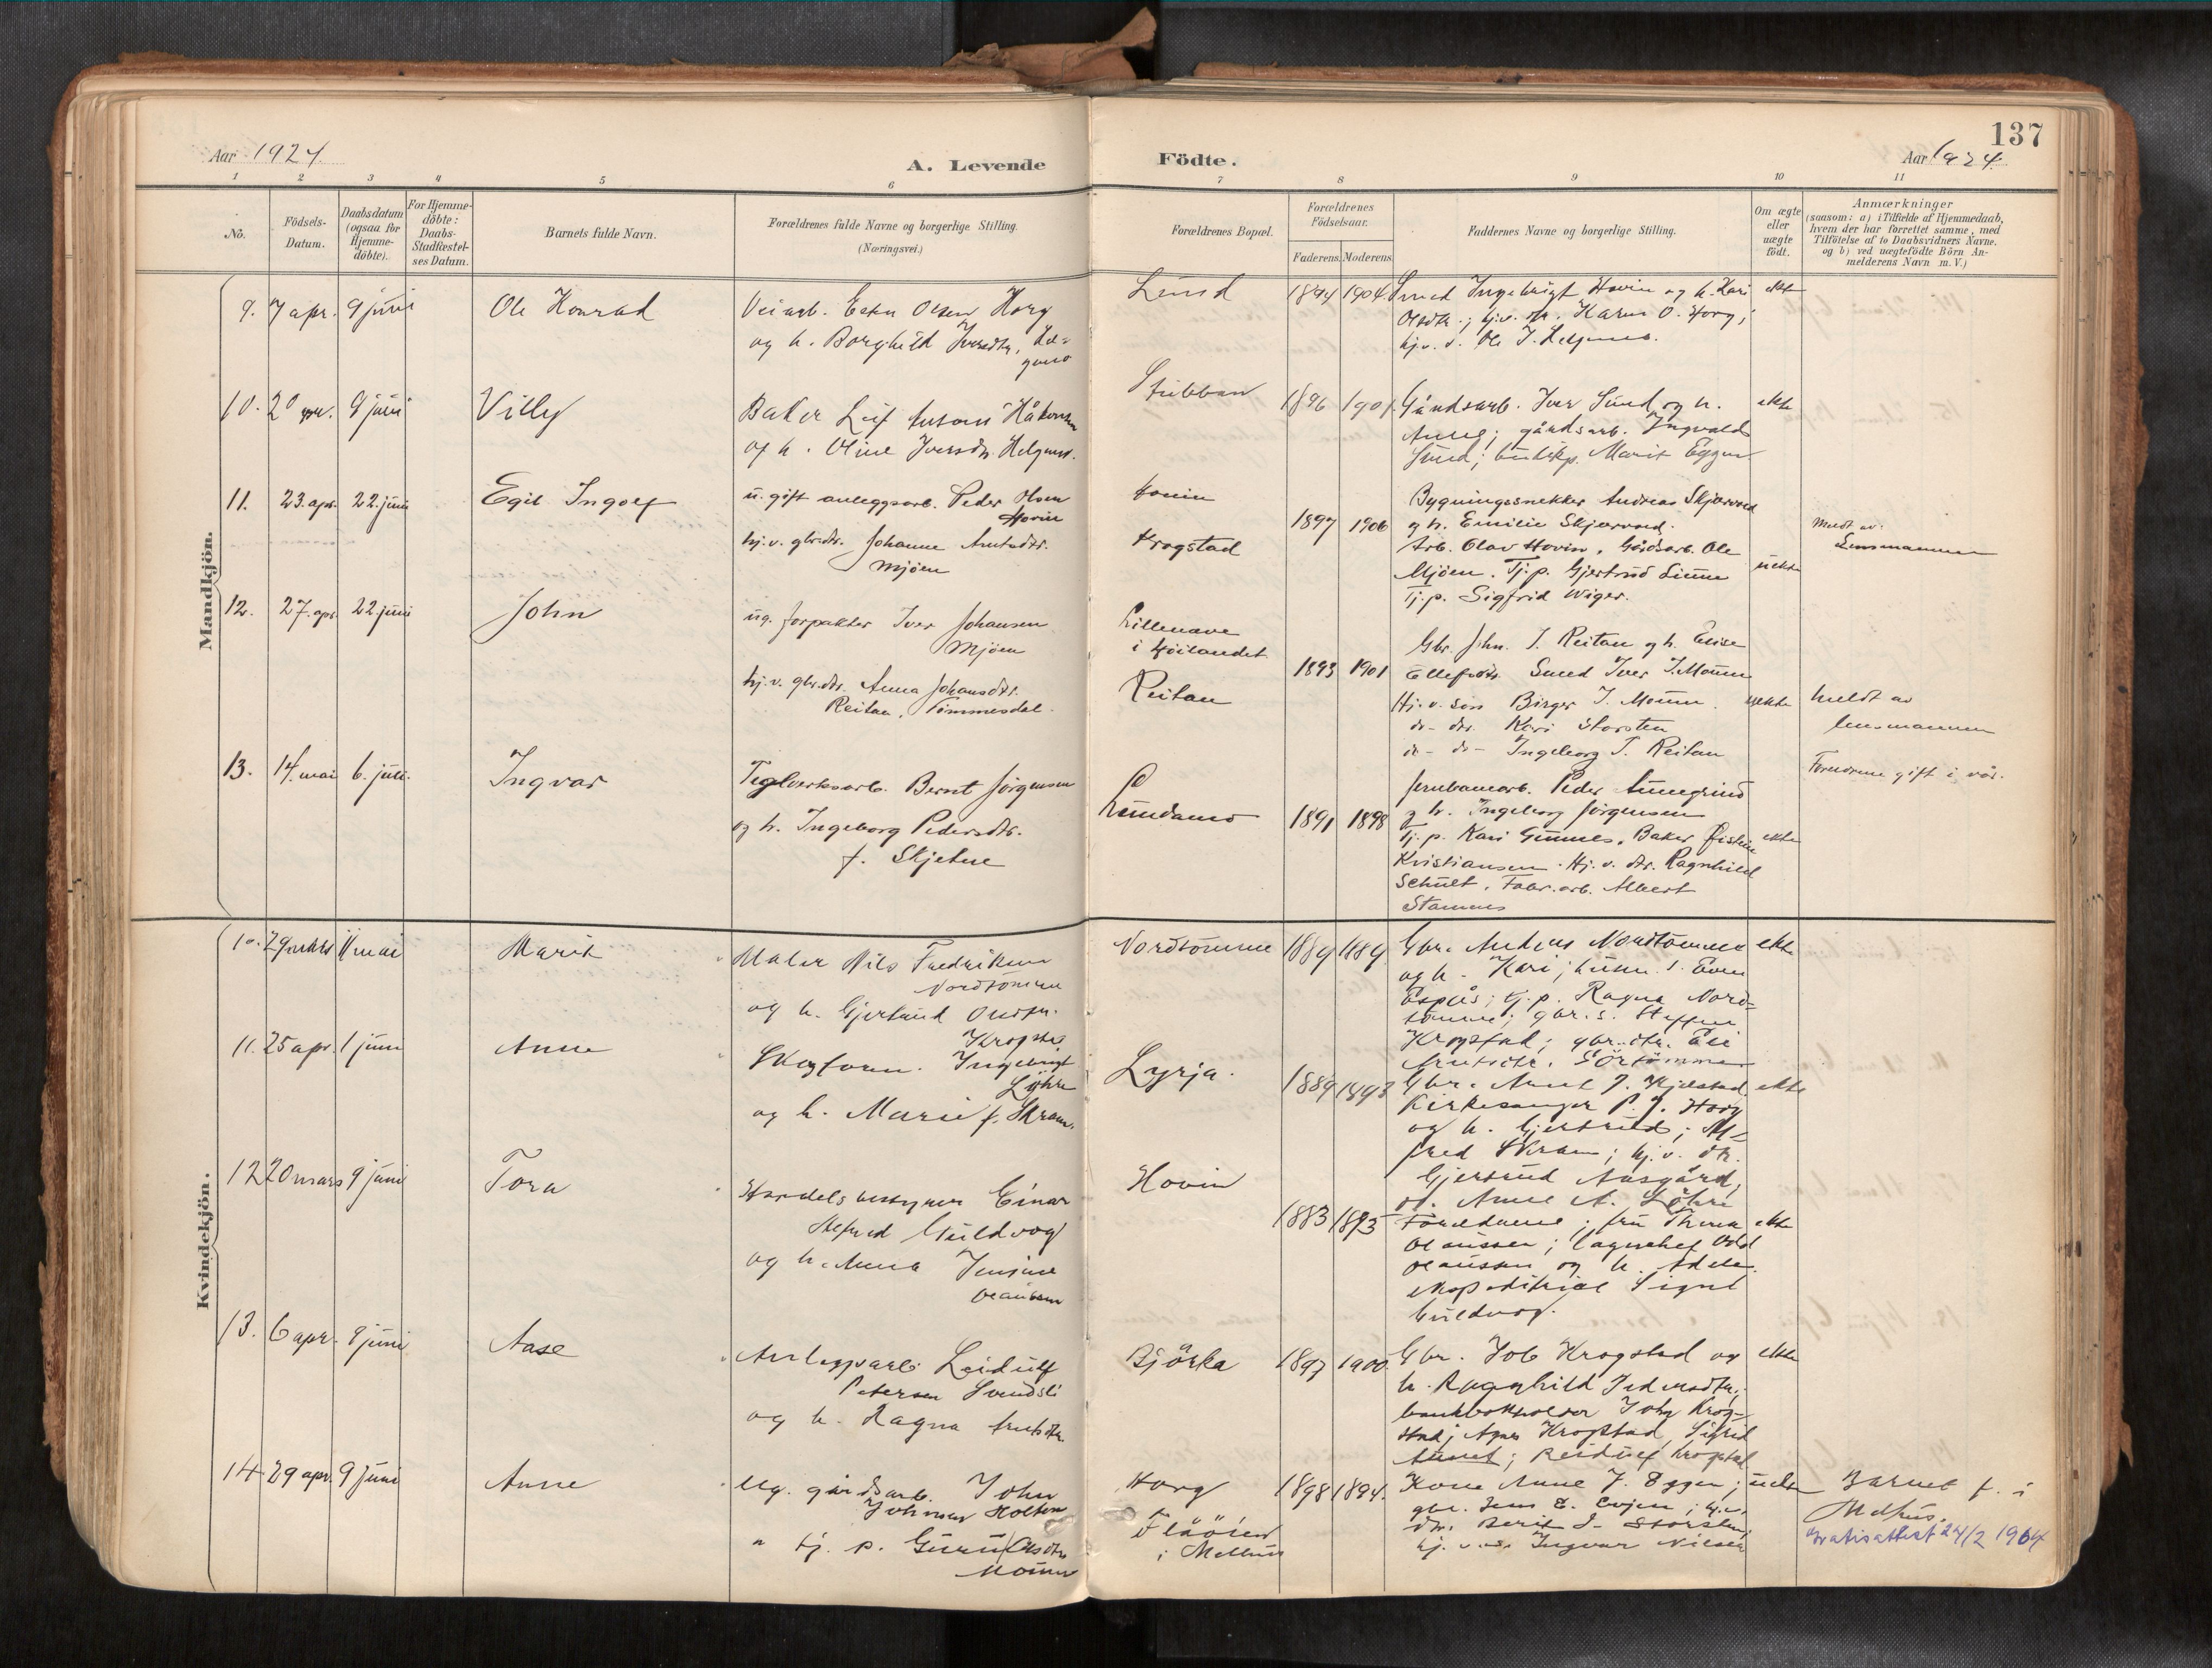 137
Aar 1924.
A. Levende
Födte.
Aar 1924.
1 2 3 4 5 6 7 8 9 10 11
No.
Födsels-
Datum.
Daabsdatum
(ogsaa for
Hjemme-
döbte).
For Hjemme-
döbte:
Daabs-
Stadfæstel-
ses Datum.
Barnets fulde Navn.
Forældrenes fulde Navne og borgerlige Stilling.
(Næringsvei.)
Forældrenes Bopæl.
Forældrenes
Födselsaar.
Faderens. Moderens.
Faddernes Navne og borgerlige Stilling.
Om ægte
eller
uægte
födt.
Anmærkninger
(saasom: a) i Tilfælde af Hjemmedaab,
hvem der har forrettet samme, med
Tilföielse af to Daabsvidners Navne.
og b) ved uægtefödte Börn An-
melderens Navn m. V.)
Mandkjön.
9. 7 apr. 9 juni
Ole Konrad
Veiarb. Olsen Horg
og h. Borghild Iversdtr.
1894 1904
Smed Ingebrigt Hovin og h. Kari
Olsdtr.; hj.v. dtr. Karen O. Horg;
hj.v. s. Ole J.
ekte
10. 20 apr. 9 juni
Villy
Baker Leif Antons Håkonsen
og h. Oline Iversdtr.
Stubban
1896 1901.
Gårdsarb. Iver Sund og h.
Anne; gårdsarb. Ingvald
Sund; Marit Eggen
ekte
11. 23. apr. 22. juni
Egil Ingolf
u. gift anleggsarb. Peder Olsen
Hovin
hj.v. gbr.dtr. Johanne Arntsdtr.
Mjöen
Hovin
Krogstad
1897 1906
Bygningssnekker Andreas Skjærvold
og h. Emilie Skjærvold.
Arb. Olav Hovin. Gårdsarb. Ole
Mjöen. Tj.p. Gjertrud
Tj.p. Sigfrid Wiger.
uekte
Meldt av:
Lensmannen
12. 27. apr. 22. juni
John
ug. forpakter Iver Johansen
Mjöen
hj.v. gbr.dtr. Anna Johansdtr.
Reitan,
Lillenave
i Höilandet.
Reitan
1893 1901
Gbr. John. I. Reitan og h. Elise
Ellefsdtr. Smed Iver J. Moum
Hj.v. sön Birger J. Moum.
do- dtr. Kari Storsten
do- do- Ingeborg T. Reitan
uekte
Meldt av
lensmannen
Foreldrene gift i vår.
13. 14. mai 6. juli.
Ingvar
Teglverksarb. Bernt Jörgensen
og h. Ingeborg Pedersdtr.
f. Skjetne
Lundamo
1891 1898
Jernbanearb. Peder
og h. Ingeborg Jörgensen
Tj.p. Kari Gummes. Baker
Kristiansen. Hj.v. dtr. Ragnhild
Schult. Fabr.arb. Albert
Stamnes
ekte
Kvindekjön.
10. 29 mars 11 mai
Marit
Maler Nils Fredriksen
Nordtömme
og h. Gjertrud
Krogstad
Nordtömme
1889 1889
Gbr. Anders Nordtömme
og h. Kari; Even
Espås; tj.p. Ragna Nord-
tömme; gbr.s. Steffen
Krogstad; gbr.dtr. Eli
Arntsdtr. Sörtömme
ekte
11. 25 apr. 1 juni
Anne
Skogforv. Ingebrigt
Löhre
og h. Marie f. Skram.
Lyrja.
1889 1893
Gbr. Arnt J. Kjelstad
Kirkesanger P. J. Horg
og h. Gjertrud; Al-
fred Skram; hj.v. dtr.
Gjertrud Aasgård,
do. Anne A. Löhre
ekte
12 20 mars 9 juni
Tora
Handelsbestyrer Einar
Alfred Guldvog
og h. Anna Jensine
Olaussen
Hovin
1883 1895
Foreldrene; fru Thora
Olaussen; lagerchef Odd
Olaussen og h. Adele.
ekspeditrice Signe
Guldvog.
ekte
13. 6 apr. 9 juni
Aase
Anleggsarb. Leidulf
Petersen Svendsli
og h. Ragna Arntsdtr.
Bjørka
1897 1900.
Gbr. Job Krogstad og
h. Ragnhild Pedersdtr.,
bankbokholder John Krog-
stad; Agnes Krogstad, Sigrid
Krogstad
ekte
14 29 apr. 9 juni
Anne
Ug. gårdsarb. John
Johnsen Holten
" tj. p. Guru Olsdtr.
Moum
Horg
Flåöien
i Melhus
1898 1894.
Kone Anne J. Eggen;
gbr. Jens E. Evjen; hj.v.
dtr. Berit J. Storsten;
hj. v. s. Ingvar Nilsen
uekte
Barnet f. i
Melhus.
Gratisattest 24/2 1964